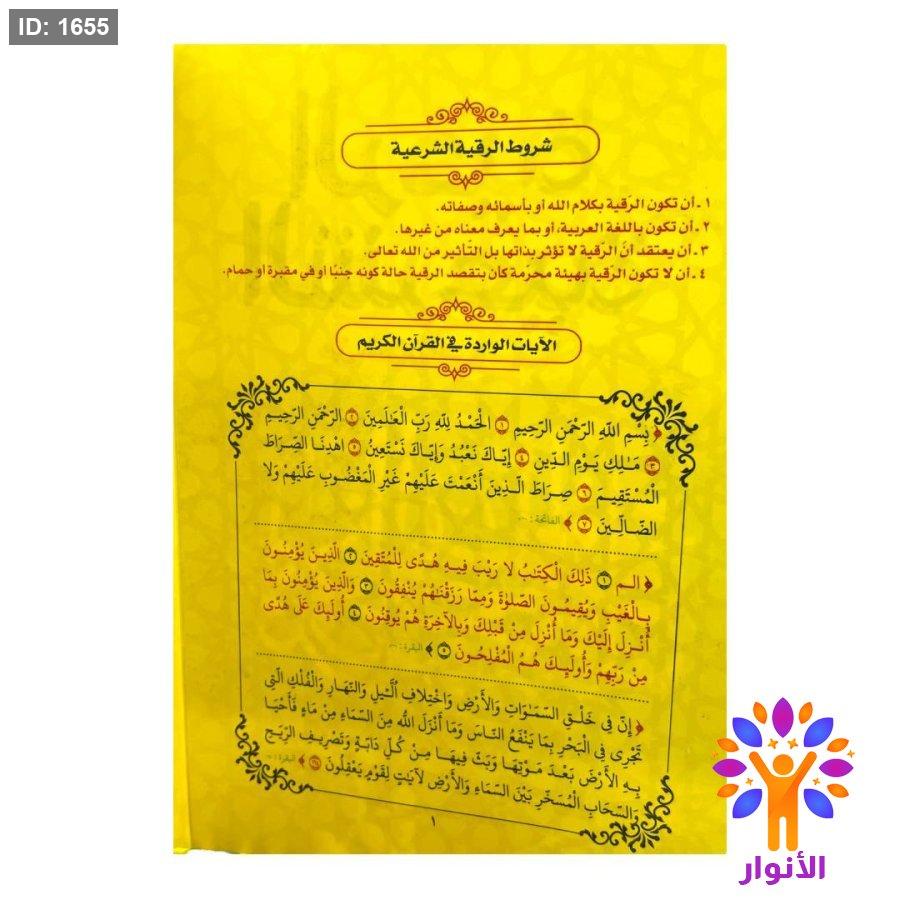 ID: 1655
شروط الرقية الشرعية
١ ـ أن تكون الرّقية بكلام الله أو بأسمائه وصفاته.
٢ ـ أن تكون باللغة العربية، أو بما يعرف معناه من غيرها.
٣ ـ أن يعتقد أنَّ الرّقية لا تؤثر بذاتها بل التّأثير من الله تعالى.
٤ ـ أن لا تكون الرّقية بهيئة محرّمة كأن يتقصد الرقية حالة كونه جنبًا أو في مقبرة أو حمام.
الآيات الواردة في القرآن الكريم
﴿ بِسْمِ اللهِ الرَّحْمَنِ الرَّحِيمِ ١ الْحَمْدُ لِلَّهِ رَبِّ الْعَالَمِينَ ٢ الرَّحْمَنِ الرَّحِيمِ
٣ مَالِكِ يَوْمِ الدِّينِ ٤ إِيَّاكَ نَعْبُدُ وَإِيَّاكَ نَسْتَعِينُ ٥ اهْدِنَا الصِّرَاطَ
الْمُسْتَقِيمَ ٦ صِرَاطَ الَّذِينَ أَنْعَمْتَ عَلَيْهِمْ غَيْرِ الْمَغْضُوبِ عَلَيْهِمْ وَلَا
الضَّالِّينَ ٧ ﴾ الفاتحة:
﴿ الم ١ ذَلِكَ الْكِتَابُ لَا رَيْبَ فِيهِ هُدًى لِلْمُتَّقِينَ ٢ الَّذِينَ يُؤْمِنُونَ
بِالْغَيْبِ وَيُقِيمُونَ الصَّلَوٰةَ وَمِمَّا رَزَقْنَاهُمْ يُنْفِقُونَ ٣ وَالَّذِينَ يُؤْمِنُونَ بِمَا
أُنْزِلَ إِلَيْكَ وَمَا أُنْزِلَ مِنْ قَبْلِكَ وَبِالْآخِرَةِ هُمْ يُوقِنُونَ ٤ أُولَئِكَ عَلَى هُدًى
مِنْ رَبِّهِمْ وَأُولَئِكَ هُمُ الْمُفْلِحُونَ ٥ ﴾ البقرة:
﴿ إِنَّ فِي خَلْقِ السَّمَاوَاتِ وَالْأَرْضِ وَاخْتِلَافِ الَّيْلِ وَالنَّهَارِ وَالْفُلْكِ الَّتِي
تَجْرِي فِي الْبَحْرِ بِمَا يَنْفَعُ النَّاسَ وَمَا أَنْزَلَ اللهُ مِنَ السَّمَاءِ مِنْ مَاءٍ فَأَحْيَا
بِهِ الْأَرْضَ بَعْدَ مَوْتِهَا وَبَثَّ فِيهَا مِنْ كُلِّ دَابَّةٍ وَتَصْرِيفِ الرِّيَاحِ
وَالسَّحَابِ الْمُسَخَّرِ بَيْنَ السَّمَاءِ وَالْأَرْضِ لَآيَاتٍ لِقَوْمٍ يَعْقِلُونَ ﴾ البقرة:
١
الأنوار